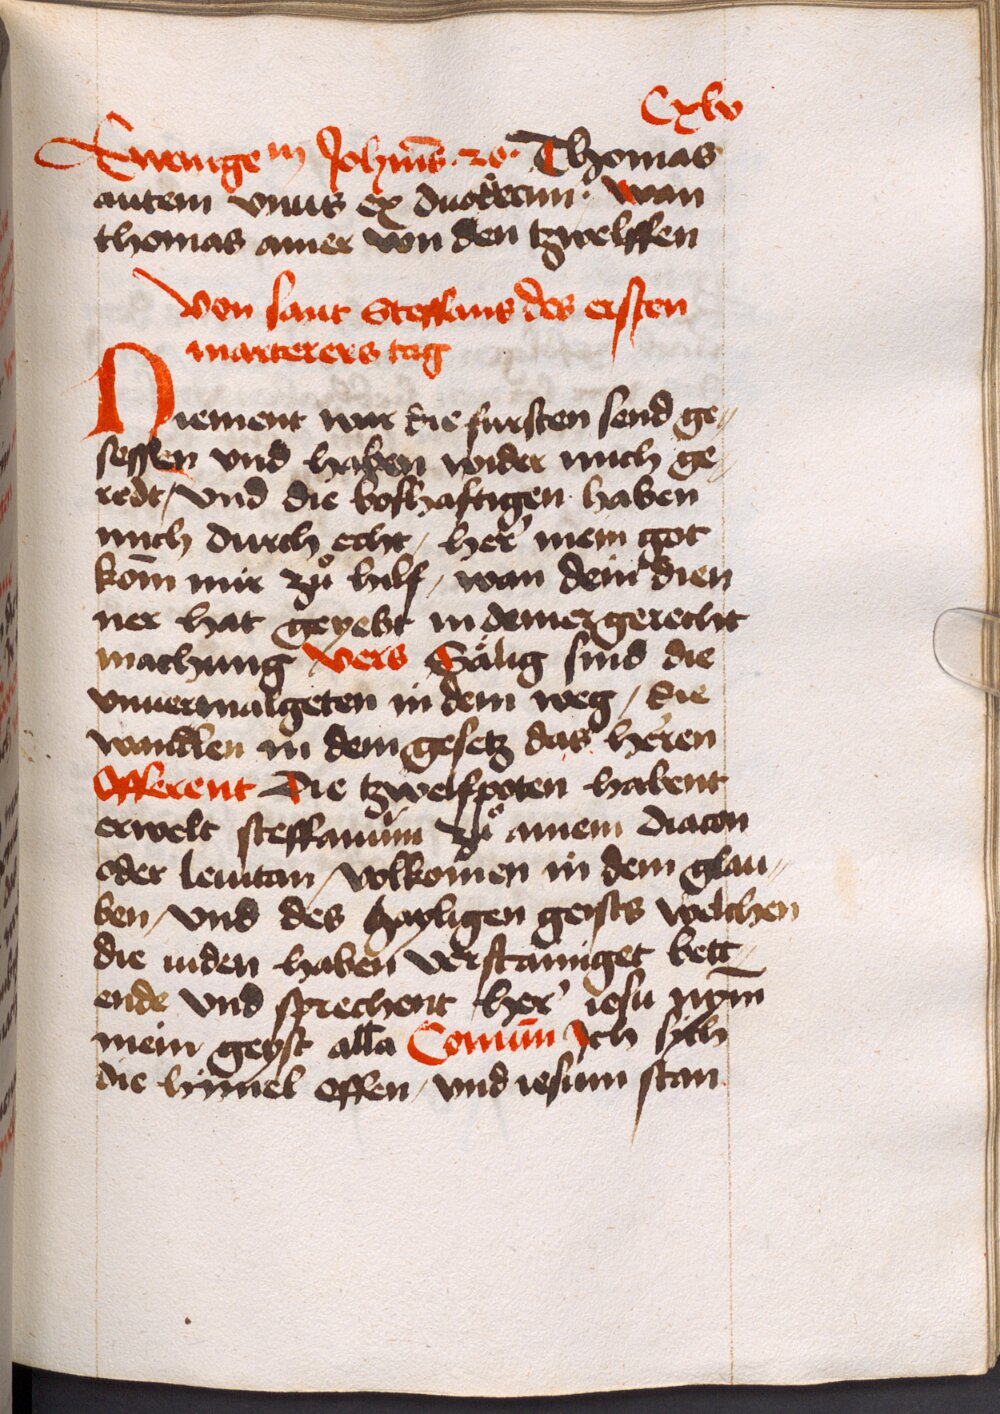 Cxlv
Ewange m Johīns · 20 · Thomas
autem vnus ex duodecim · wan
thomas ainer von den tzwelffen
Von sant Steffans des ersten
marterers tag
Niement war die fursten send ge⸗
sessen vnd haben wider mich ge⸗
redt / vnd die boszhaftigen haben
mich durch echt / her' mein got
kom̄ mir zuͦ hilf / wan dein dien
ner hat geyebt in deiner gerecht
machung Vers Sälig sind die
vnuermalgeten in dem weg / die
wandlen in dem gesetz das herren
Offerent Die tzwelfpoten habent
erwelt steffanum zuͦ ainem diacon
oder leuitan / volkom̄en in dem glau⸗
ben / vnd des hayligen geists welchen
die iuden haben verstainiget bett⸗
ende vnd sprechent her' iesu nym̄
mein geyst alla Comūn Ich sych
die him̄el offen / vnd iesum stan